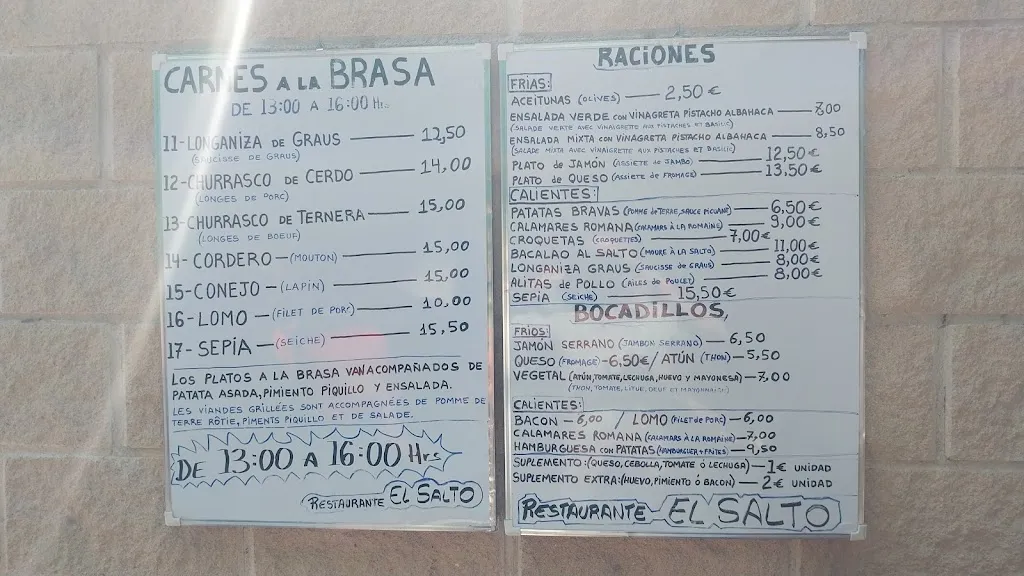 CARNES A LA BRASA
DE 13:00 A 16:00 Hrs
11-LONGANIZA DE GRAUS — 12,50
(SAUCISSE DE GRAUS)
12-CHURRASCO DE CERDO — 14,00
(LONGES DE PORC)
13-CHURRASCO DE TERNERA — 15,00
(LONGES DE BOEUF)
14-CORDERO-(MOUTON) — 15,00
15-CONEJO-(LAPIN) — 15,00
16-LOMO-(FILET DE PORC) — 10,00
17-SEPIA-(SEICHE) — 15,50
LOS PLATOS A LA BRASA VAN ACOMPAÑADOS DE
PATATA ASADA, PIMIENTO PIQUILLO Y ENSALADA.
LES VIANDES GRILLÉES SONT ACCOMPAGNÉES DE POMME DE
TERRE RÔTIE, PIMENTS PIQUILLO ET DE SALADE.
DE 13:00 A 16:00 Hrs
RESTAURANTE EL SALTO
RACIONES
FRIAS:
ACEITUNAS (OLIVES) — 2,50 €
ENSALADA VERDE CON VINAGRETA PISTACHO ALBAHACA — 7,00
(SALADE VERTE AVEC VINAIGRETTE AUX PISTACHES ET BASILIC)
ENSALADA MIXTA CON VINAGRETA PISTACHO ALBAHACA — 8,50
(SALADE MIXTA AVEC VINAIGRETTE AUX PISTACHES ET BASILIC)
PLATO DE JAMÓN (ASSIETE DE JAMBO) — 12,50€
PLATO DE QUESO (ASSIETE DE FROMAGE) — 13,50€
CALIENTES:
PATATAS BRAVAS (POMME DE TERRE, SAUCE PICUANE) — 6,50€
CALAMARES ROMANA (CALAMARS À LA ROMAINE) — 9,00€
CROQUETAS (CROQUETTES) — 7,00€
BACALAO AL SALTO (MOURE À LA SALTO) — 11,00€
LONGANIZA GRAUS (SAUCISSE DE GRAUS) — 8,00€
ALITAS DE POLLO (AILES DE POULET) — 8,00€
SEPIA (SEICHE) — 15,50€
BOCADILLOS,
FRIOS:
JAMÓN SERRANO (JAMBON SERRANO) — 6,50
QUESO (FROMAGE)-6,50€/ ATÚN (THON) — 5,50
VEGETAL (ATÚN, TOMATE, LECHUGA, HUEVO Y MAYONESA) — 7,00
(THON, TOMATE, LITUE, OEUF ET MAYONNAISE)
CALIENTES:
BACON — 6,00 / LOMO (FILET DE PORC) — 6,00
CALAMARES ROMANA (CALAMARS À LA ROMAINE) — 7,00
HAMBURGUESA CON PATATAS (HAMBURGUER+FRITES) — 9,50
SUPLEMENTO:(QUESO, CEBOLLA, TOMATE Ó LECHUGA) — 1€ UNIDAD
SUPLEMENTO EXTRA:(HUEVO, PIMIENTO Ó BACON) — 2€ UNIDAD
RESTAURANTE EL SALTO